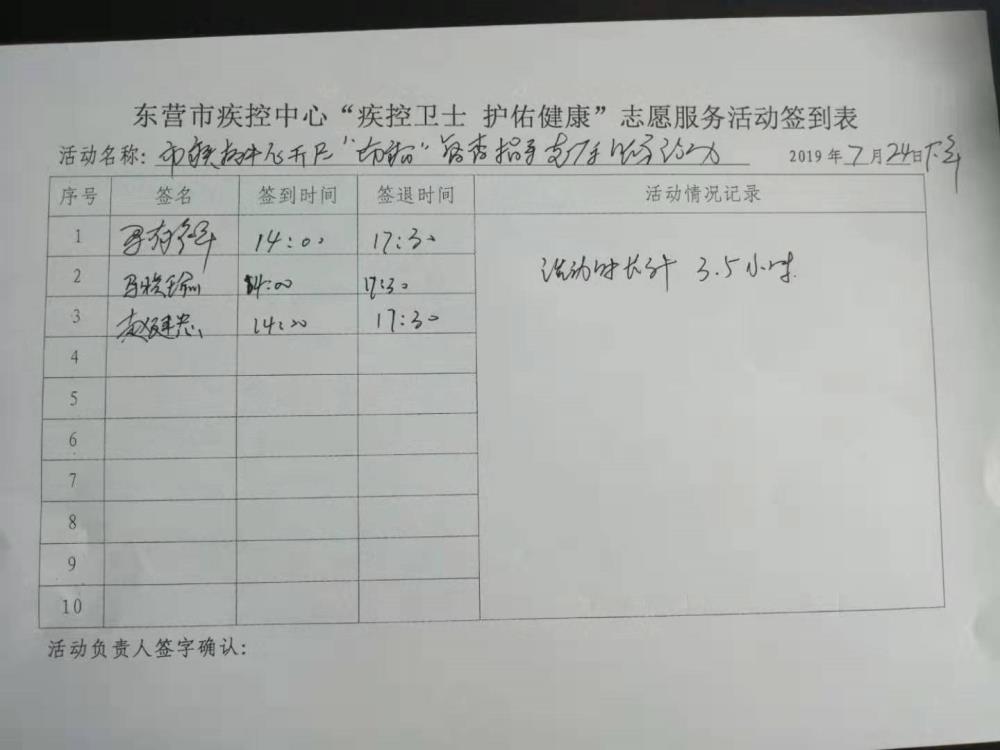 东营市疾控中心“疾控卫士 护佑健康”志愿服务活动签到表
活动名称：市疾控中心开展 督查指导 活动 2019年7月24日下午
序号 签名 签到时间 签退时间 活动情况记录
1 14:00 17:30
2 14:00 17:30
3 14:00 17:30
活动时长计 3.5小时.
4
5
6
7
8
9
10
活动负责人签字确认：